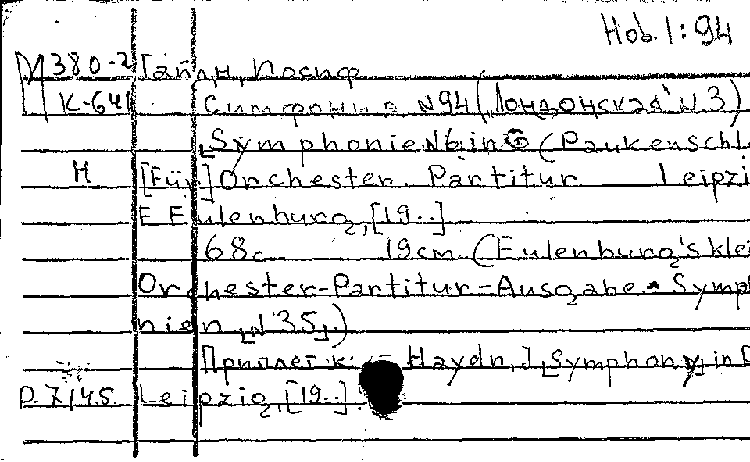 Hob. I: 94
М 380-2 Гайдн, Иосиф
К-641 Симфония №94 (Лондонская №3)
[Symphonie № 6 in G (Paukenschl
Н [Für] Orchester. Partitur Leipzi
E Eulenburg, [19..]
68с. 19cm. (Eulenburg's klei
Orchester-Partitur-Ausgabe. Symph
nien [N 35].)
Приплет к: Haydn, J. [Symphony in D
Р.7/45. Leipzig, [19..]